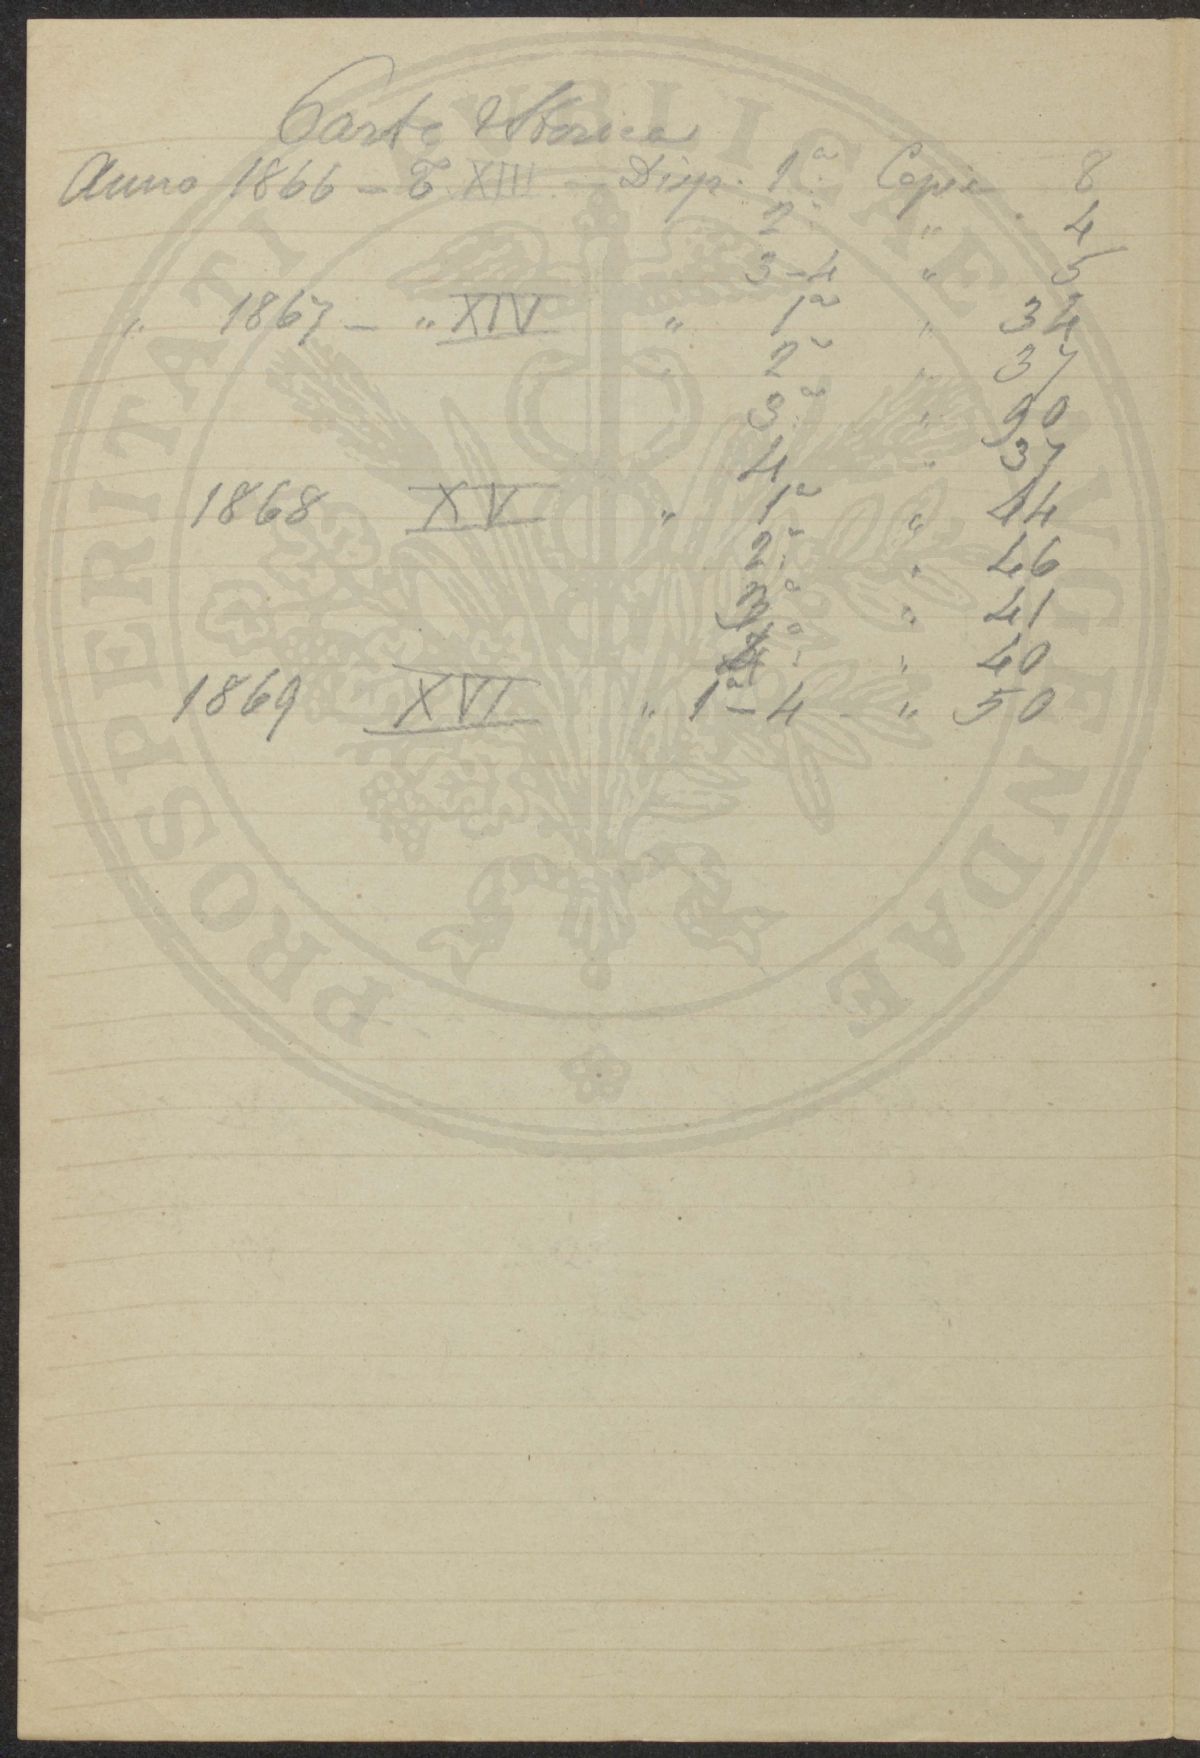 Parte Storica
Anno 1866 – T. XIII – Disp. 1ª Copie 8
2ª " 4
3-4 " 5
" 1867 – " XIV " 1ª " 34
2ª " 37
3ª " 90
4 " 37
1868 XV " 1ª " 44
2ª " 46
3ª " 41
4ª " 40
1869 XVI " 1ª-4 – " 50
PROSPERITATI PVBLICAE AVGENDAE